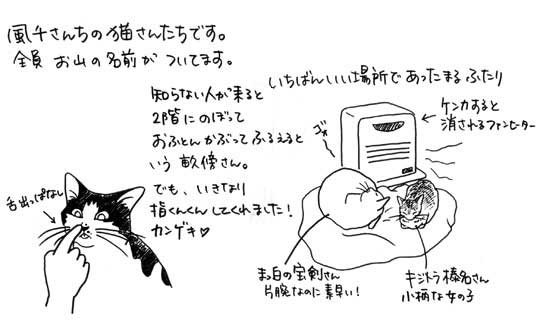 風千さんちの猫さんたちです。
全員 お山の名前が ついてます。
知らない人が来ると
2階にのぼって
おふとんかぶってふるえると
いう 軟傍さん。
でも、いきなり
指くんくんしてくれました！
カンゲキ♡
舌出っぱなし
いちばんいい場所であったまるふたり
ケンカすると
消されるファンヒーター
ゴォ
まっ白の宝剣さん
片腕なのに素早い！
キジトラ榛名さん
小柄な女の子